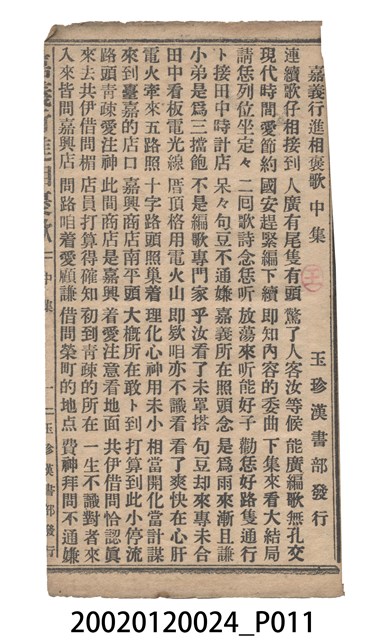 嘉義行進相褒歌 中集　玉珍漢書部發行
連續歌仔相接到 人廣有尾隻有頭 驚了人客汝等候 能廣編歌無孔交
現代時間愛節約 國安趕緊編下續 即知內容的委曲 下集來看大結局
請恁列位坐定々 二回歌詩念恁听 放蕩來听能好子 勸恁好路隻通行
卜接田中時計店 呆々句豆不通嫌 嘉義所在照頭念 是爲雨來漸且謙
小弟是爲三擋飽 不是編歌專門家 乎汝看了未罩搭 句豆却來專未合
田中看板電光線 厝頂格用電火山 即欵咱亦不識看 看了爽快在心肝
電火牽來五路照 十字路頭照巢着 理化心神用未小 相當開化當計謀
來到臺嘉的店口 嘉興商店南平頭 大概所在敢卜到 打算到此小停流
路頭青疎愛注神 此間商店是嘉興 着愛注意看地面 共伊借問恰認眞
來去共伊借問楣 店員打算得確知 初到青疎的所在 一生不識對者來
入來皆問嘉興店 問路咱着愛顧謙 借問榮町的地点 費神拜問不通嫌
嘉義行進相褒歌 中集 一 玉珍漢書部發行
20020120024_P011